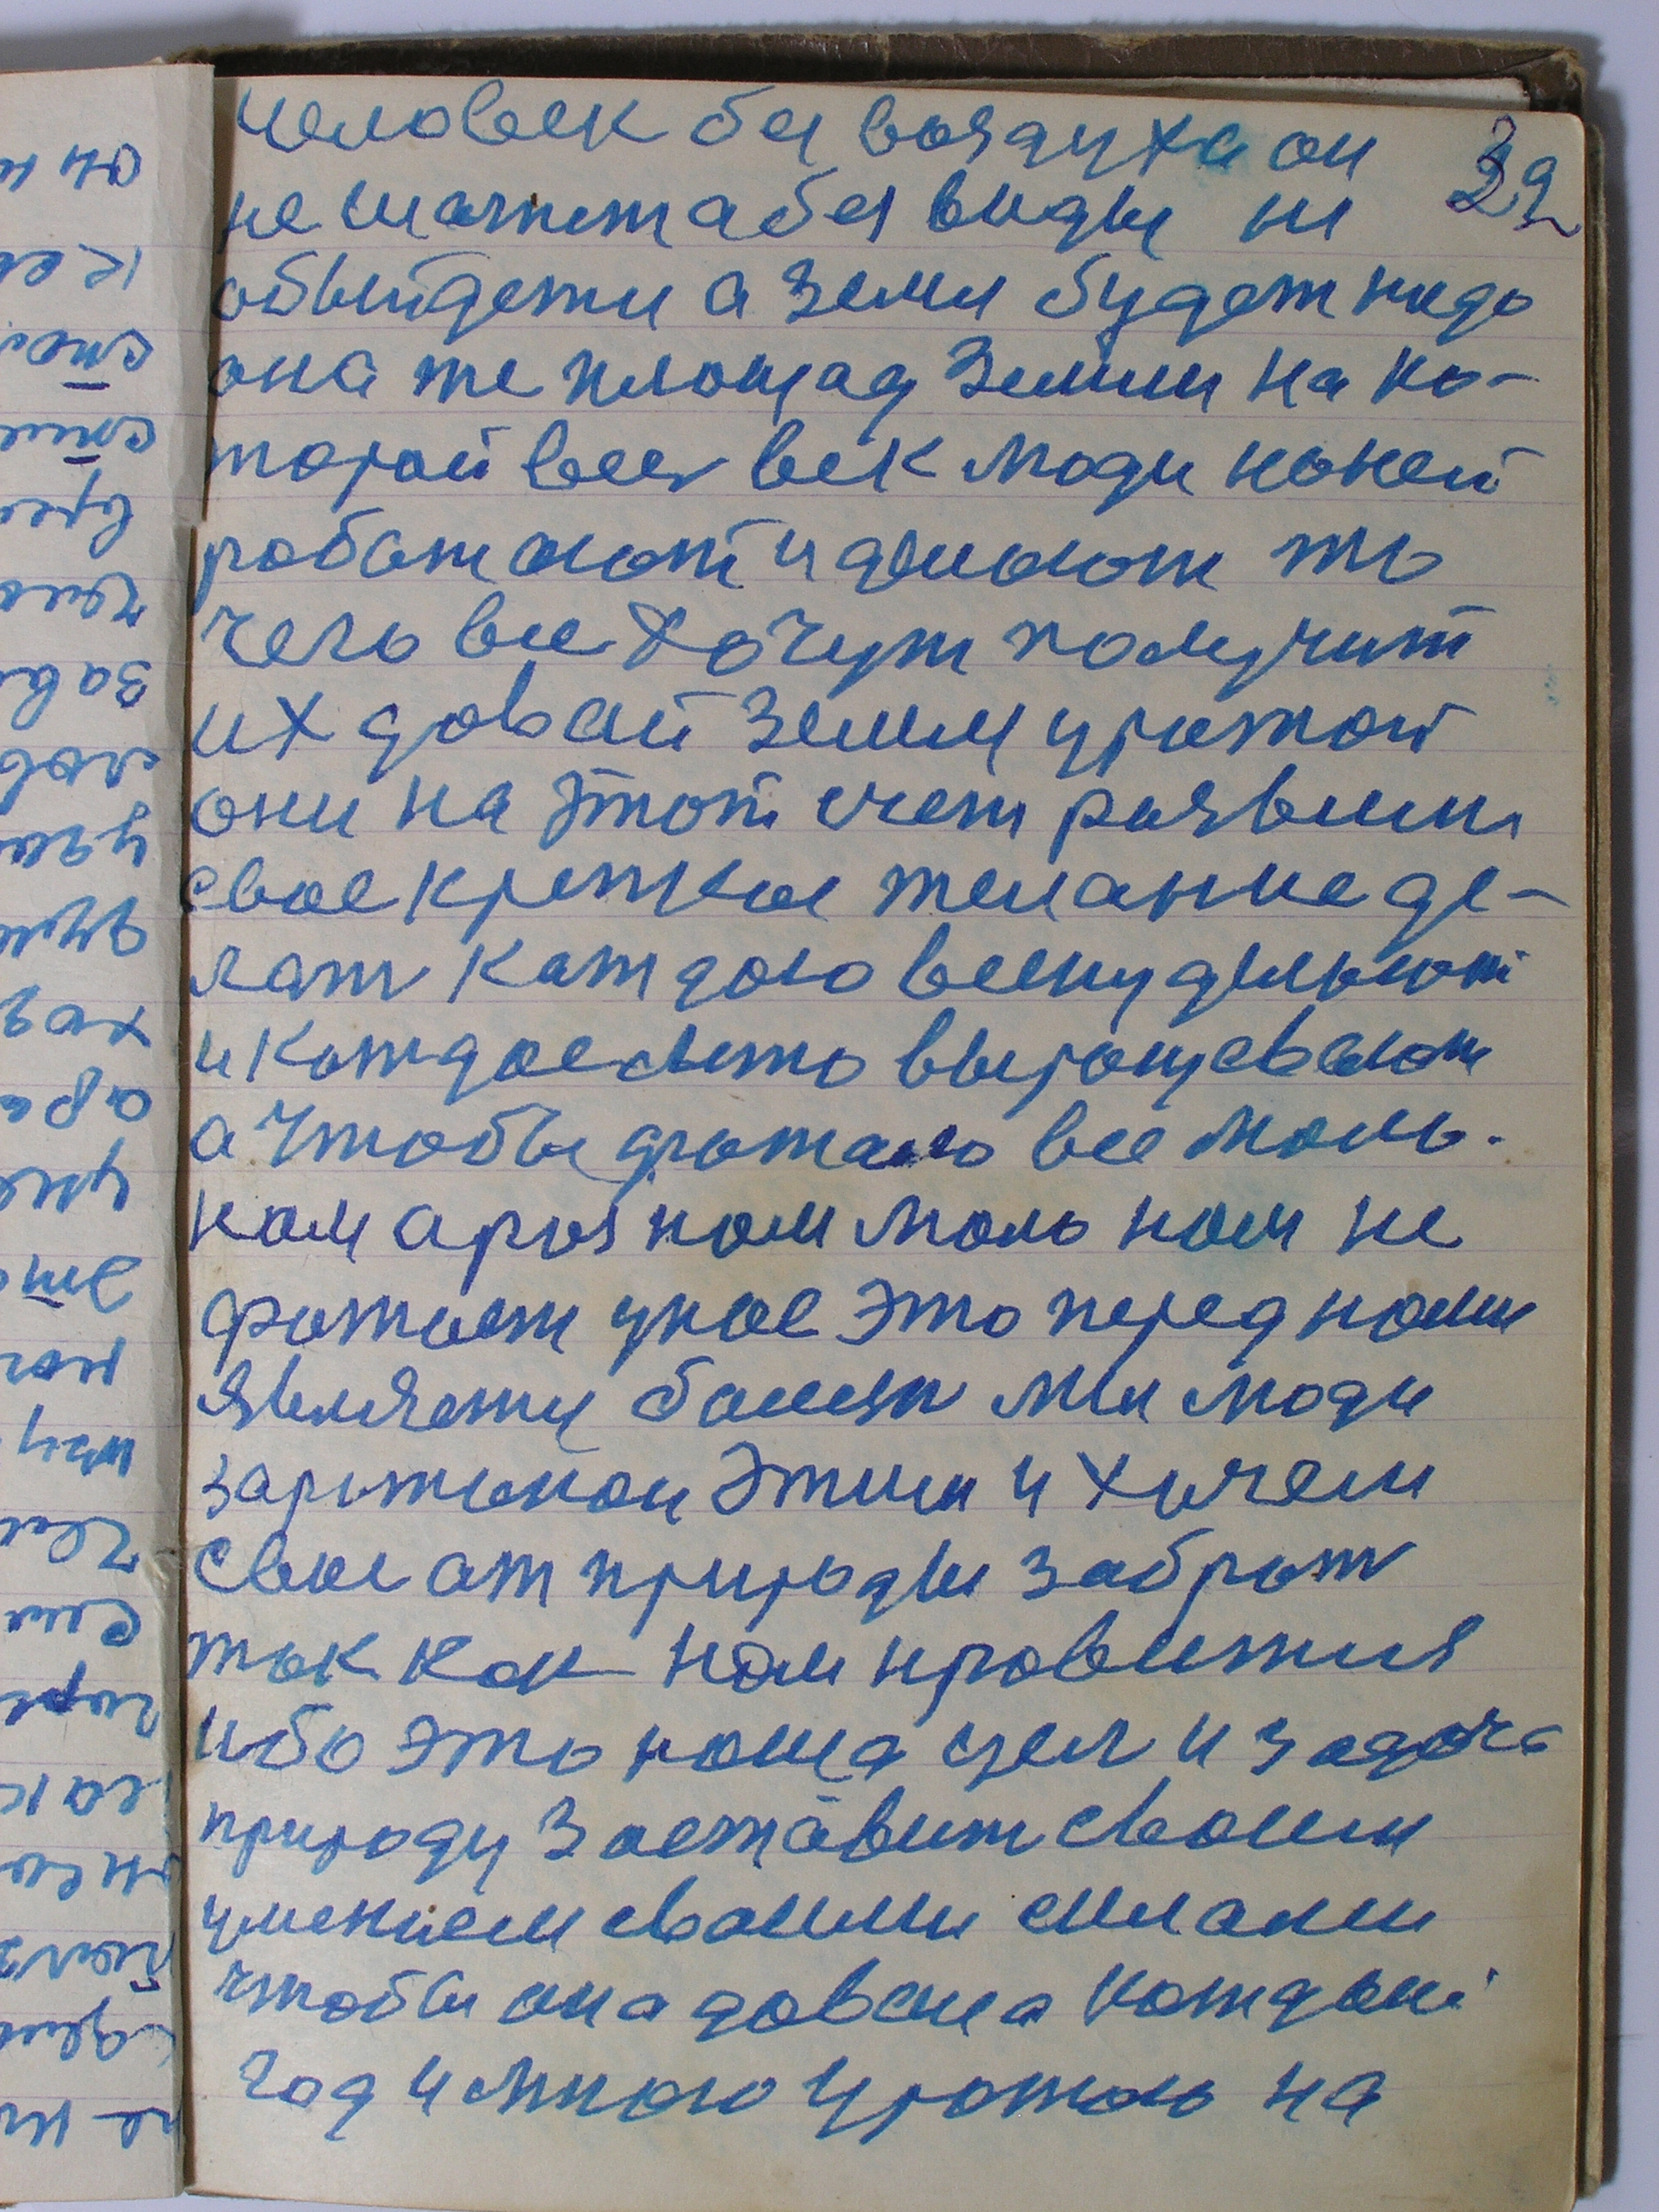 человек без воздуха он
32
не шагнет а без воды не
обыйдется а земя будет надо
она же площад земли на ко-
торой весь век люди на ней
работают и делают то
чего все хочут получит
их довай земля уражай
они на этот счет развили
свое крепкое желание де-
лат каждою весну делают
и каждое лето выращевают
а чтобы рожало все мало.
нам а раз нам мало нам не
рожает у нас это перед нами
является болезн мы люди
заражоном этим и хочем
свое от природы забрат
так как нам нравится
ибо это наша цел и задача
природу заставит своим
умением своими силами
чтобы она довала каждый
год и много урожаю на